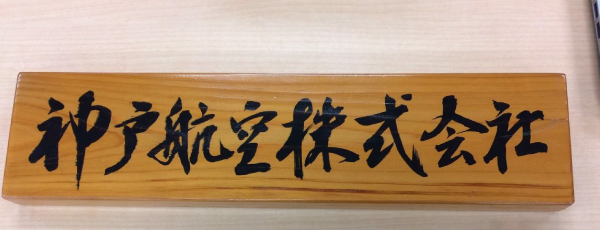 神戸航空株式会社